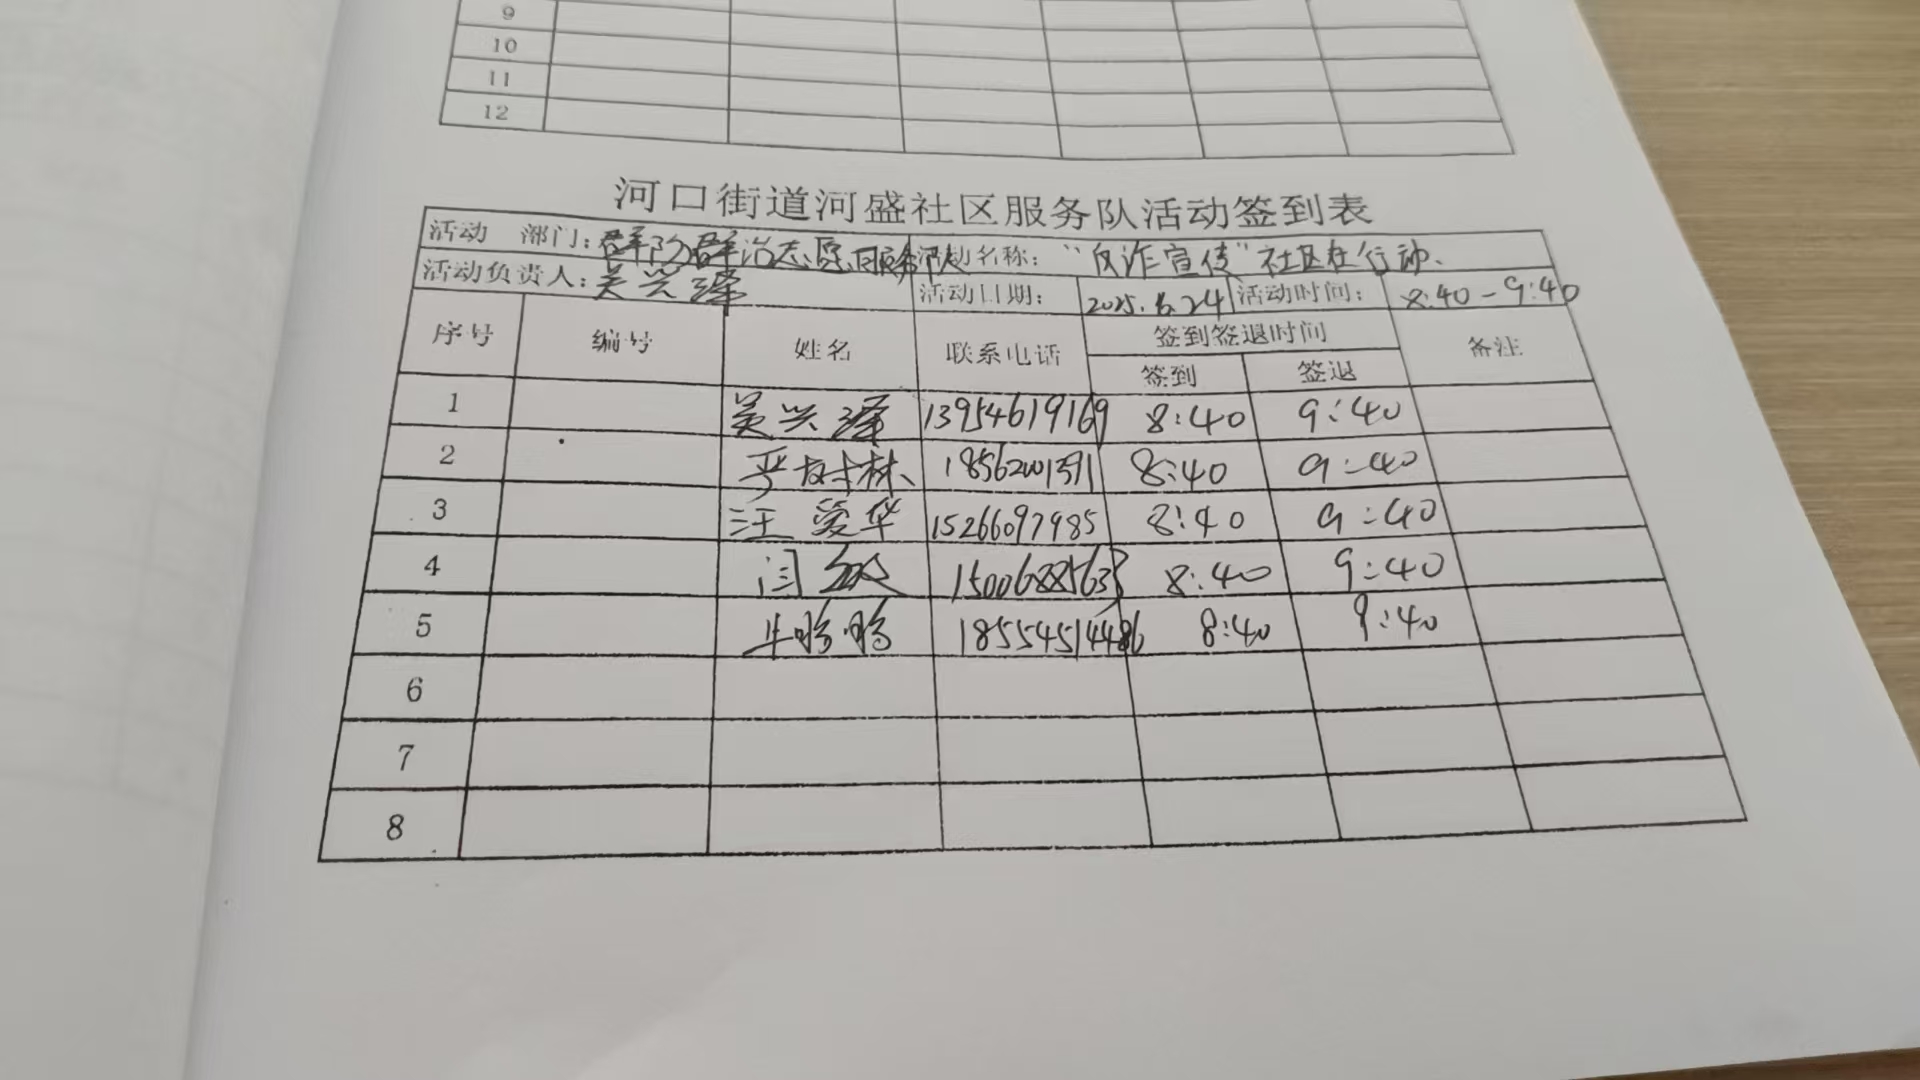 9
10
11
12
河口街道河盛社区服务队活动签到表
活动 部门：群防群治志愿服务队 活动名称： “反诈宣传”社区在行动、
活动负责人：吴兴泽 活动日期： 2025.6.24 活动时间： 8:40-9:40
序号 编号 姓名 联系电话 签到签退时间 备注
签到 签退
1 吴兴泽 13954619169 8:40 9:40
2 严树林 18562001391 8:40 9:40
3 汪爱华 15266097985 8:40 9:40
4 闫敏 15006885633 8:40 9:40
5 牛晓鸣 18554514486 8:40 9:40
6
7
8